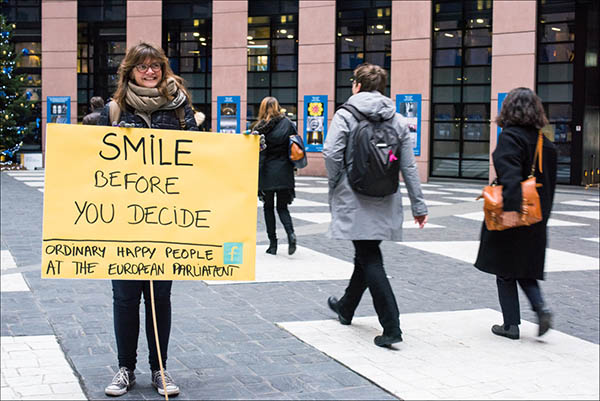 SMILE
BEFORE
YOU DECIDE
ORDINARY HAPPY PEOPLE
AT THE EUROPEAN PARLIAMENT f